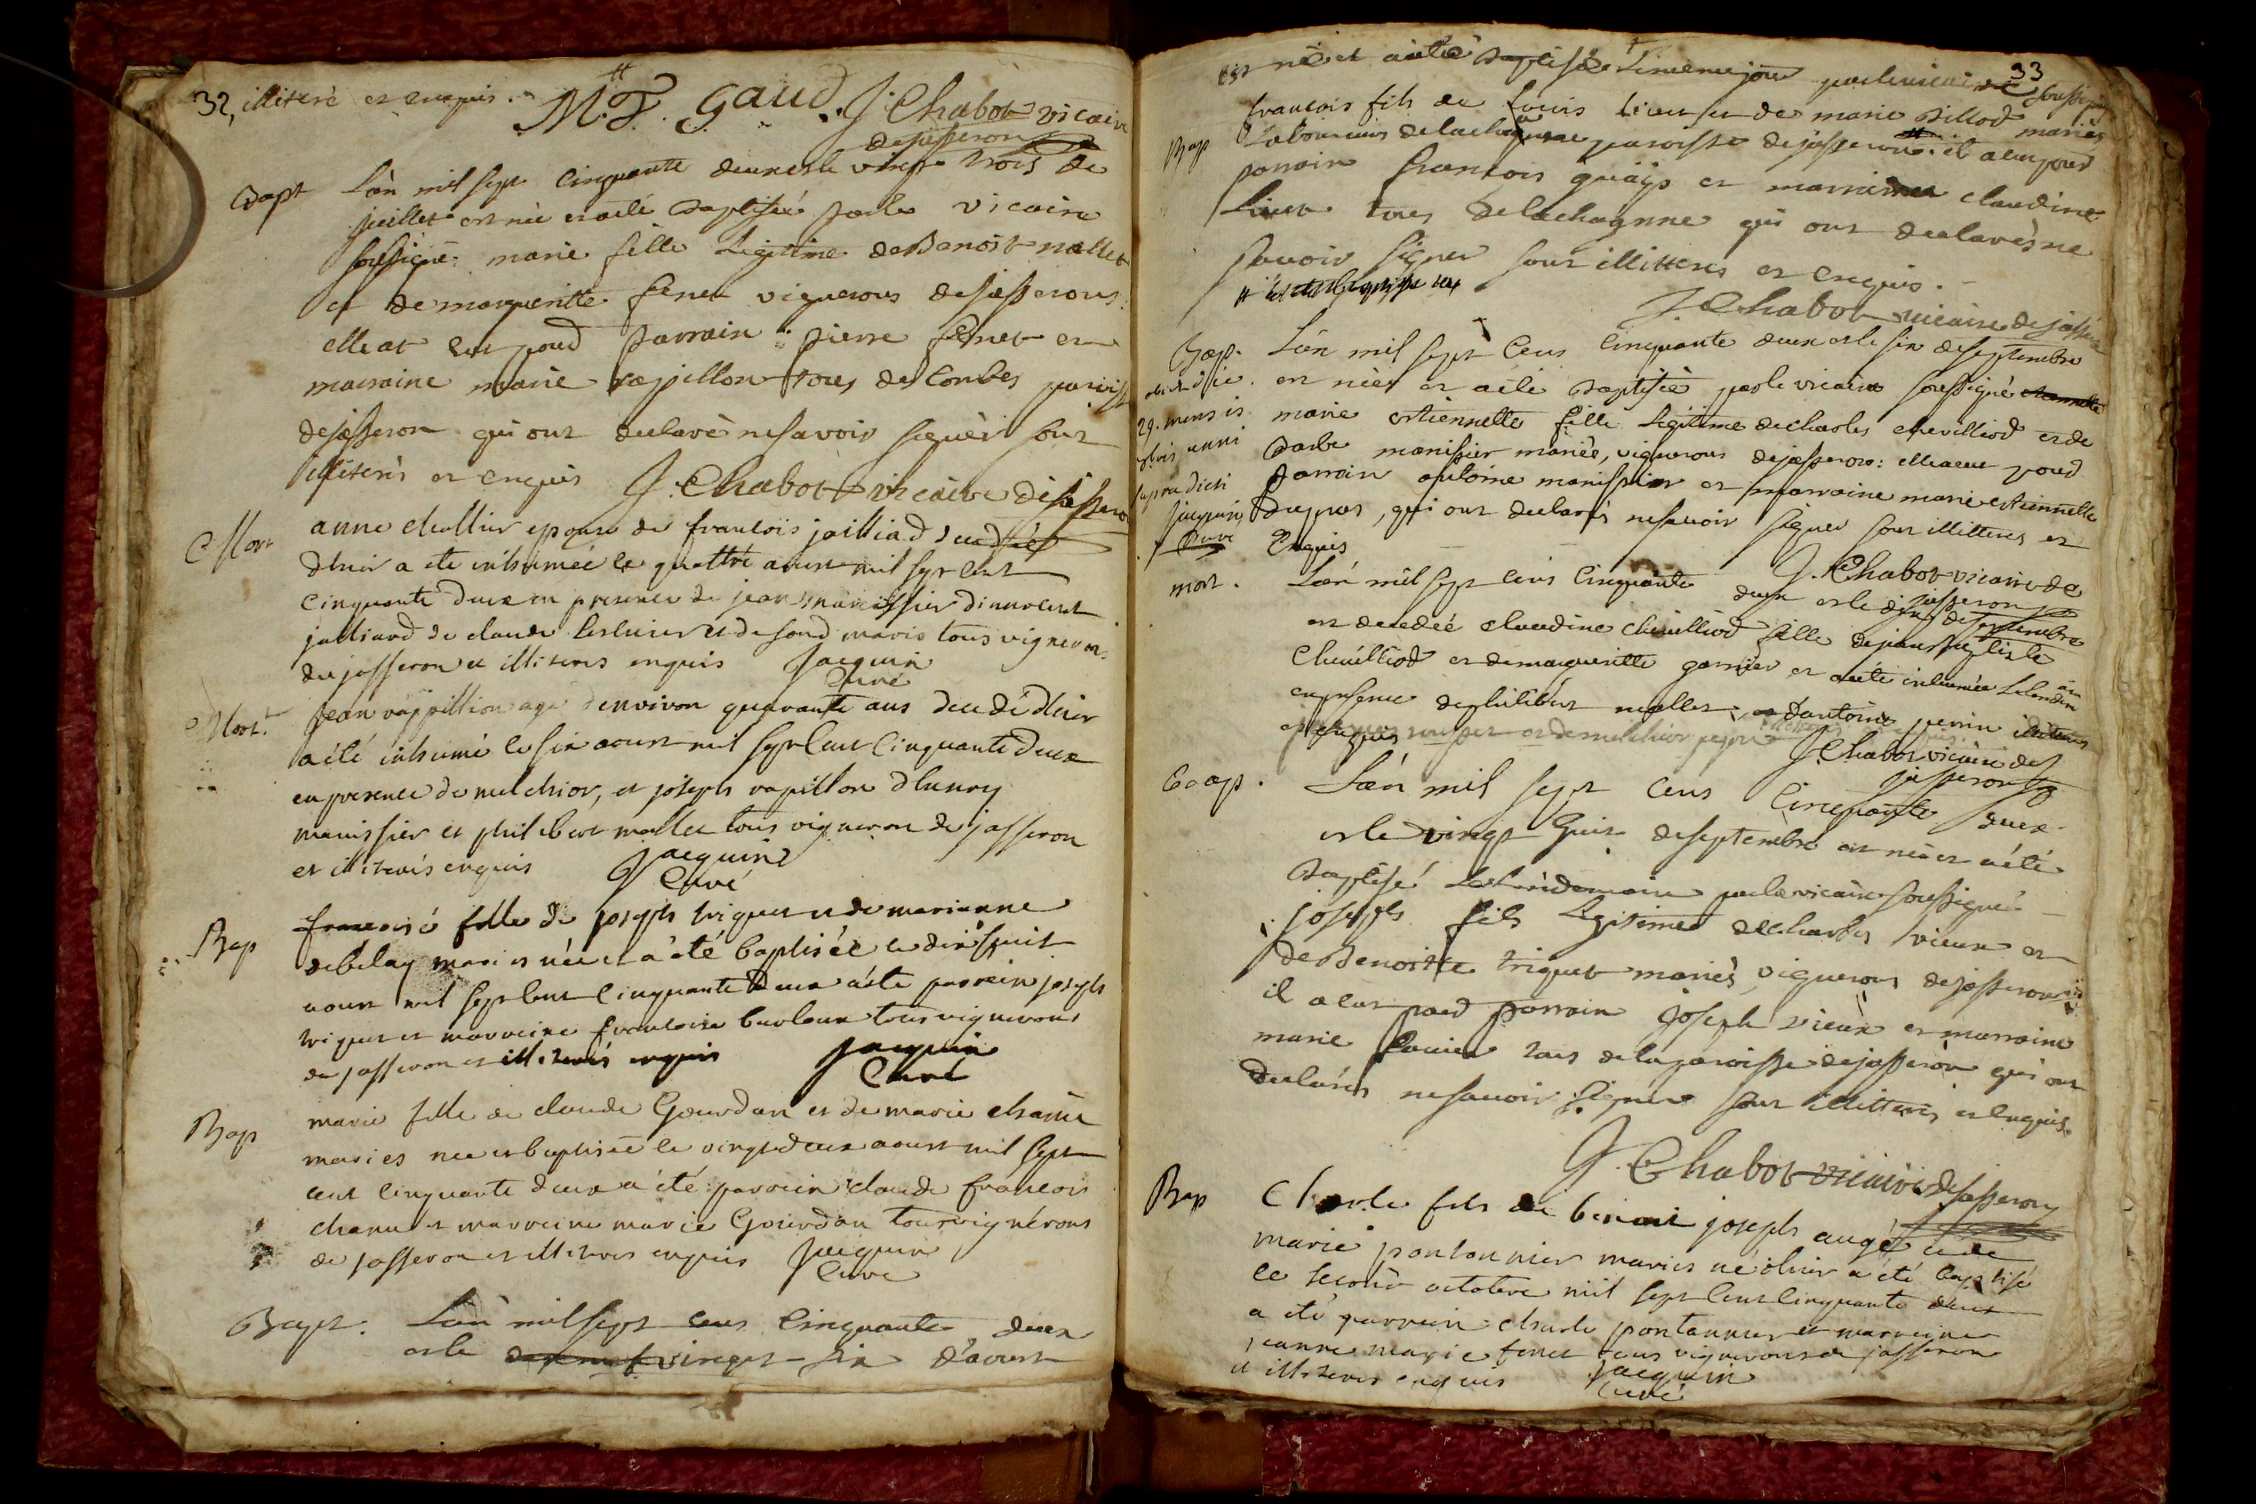 32, illiteré et enquis.
M. F. Gaud. J. Chabot vicaire
de jasseron
Bapt L'an mil sept cinquante deux et le vingt trois de
juillet est née et a été baptisée par le vicaire
soussigné marie fille legitime de Benoist mallet
et de margueritte fenet vignerons de jasserons
elle at eut pour parrain pierre fenet et
marraine marie rapillon tous des Combes paroisse
de jasseron qui ont declaré ne savoir signer sont
illiterés et enquis J. Chabot vicaire de jasseron
Mort anne chollier epouse de francois jailliad decedée
d'hier a été inhumée le quattre aoust mil sept cent
cinquante deux en presence de jean manissier d'innocent
jailliard de claude et de son mavis tous vignerons
de jasseron et illiteres enquis Jacquin
Curé
Mort. jean rappillion agé d'environ quarante ans decedé d'hier
a été inhumé le six aoust mil sept cent cinquante deux
en presence de melchior, et joseph rapillon d'henry
manissier et philibert mallet tous vigneron de jasseron
et illiterés enquis Jacquin
Curé
Bap francoise fille de joseph triquet et de marianne
debelay mariés née et a été baptisée le dix huit
aoust mil sept cent cinquante deux a été parrein joseph
triquet et marreine francoise tous vignerons
de jasseron et illiterés enquis Jacquin
Curé
Bap marie fille de claude Gourdan et de marie chanu
mariés née et baptisée le vingt deux aoust mil sept
cent cinquante deux a été parrein claude francois
chanu et marreine marie Gourdan tous vignérons
de jasseron et illiteres enquis Jacquin
Curé
Bapt. L'an mil sept cens cinquante deux
et le vingt six d'aoust
33
est né et a été baptisé le meme jour par le vicaire soussigné
Bap francois fils de Louis lieu et de marie Billod mariés
Laboureurs de la chagnne paroisse de jasseron: il a eu pour
parrain francois guäys et marraine claudine
lieu tous de la chagnne qui ont declarés ne
savoir signer sont illitterés et enquis.
J. Chabot vicaire de jasseron
Bap. L'an mil sept cens cinquante deux et le six de septembre
obiit die est née et a été baptisée par le vicaire soussigné
29. mensis marie estiennette fille legitime de charles chevilliod et de
anni Barbe manissier mariés, vignerons de jasseron: elle a eu pour
supra dicti parrain antoine manissier et marraine marie estiennette
jacquin dupras, qui ont declarés ne savoir signer sont illitteres et
Curé Enquis
J. Chabot vicaire de
jasseron
mort. L'an mil sept cens cinquante deux et le dix de septembre
est decedée claudine chevilliod fille de jean baptiste
chevilliod et de marguerite garnier et a été inhumée le lendemain
en presence de philibert mallet et d'antoine perrin illiteres
et enquis
J. Chabot vicaire de
jasseron
Bap. L'an mil sept cens cinquante deux
et le vingt huit de septembre est né et a été
baptisé le lendemain par le vicaire soussigné
joseph fils legitime de charles vieux et
de Benoitte triquet mariés, vignerons de jasseron
il a eut pour parrain joseph vieux et marraine
marie Louise tous de la paroisse de jasseron qui ont
declarés ne savoir signer sont illitterés et enquis.
J. Chabot vicaire de jasseron
Bap Charle fils de benoit joseph augé et de
marie pontonnier mariés né d'hier a été baptisé
le second octobre mil sept cent cinquante deux
a été parrein charle pontonnier et marreine
jeanne marie fenet tous vignerons de jasseron
et illiteres enquis Jacquin
Curé